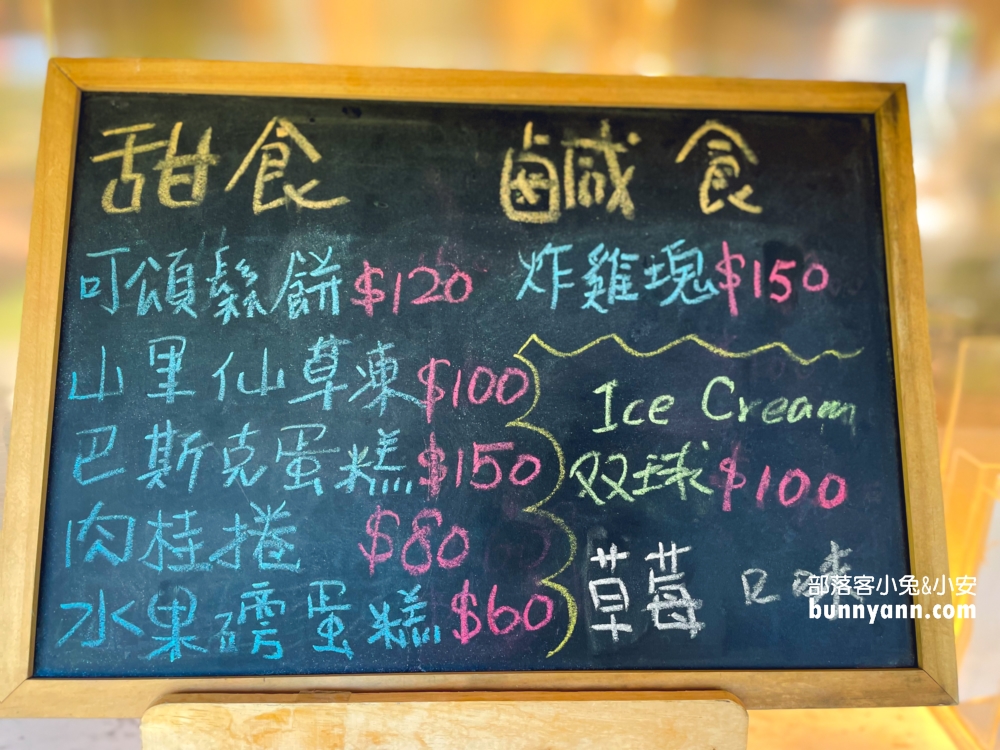 甜食
可頌鬆餅 $120
山里仙草凍 $100
巴斯克蛋糕 $150
肉桂捲 $80
水果磅蛋糕 $60
鹹食
炸雞塊 $150
Ice Cream
双球 $100
草莓 口味
部落客小兔&小安
bunnyann.com